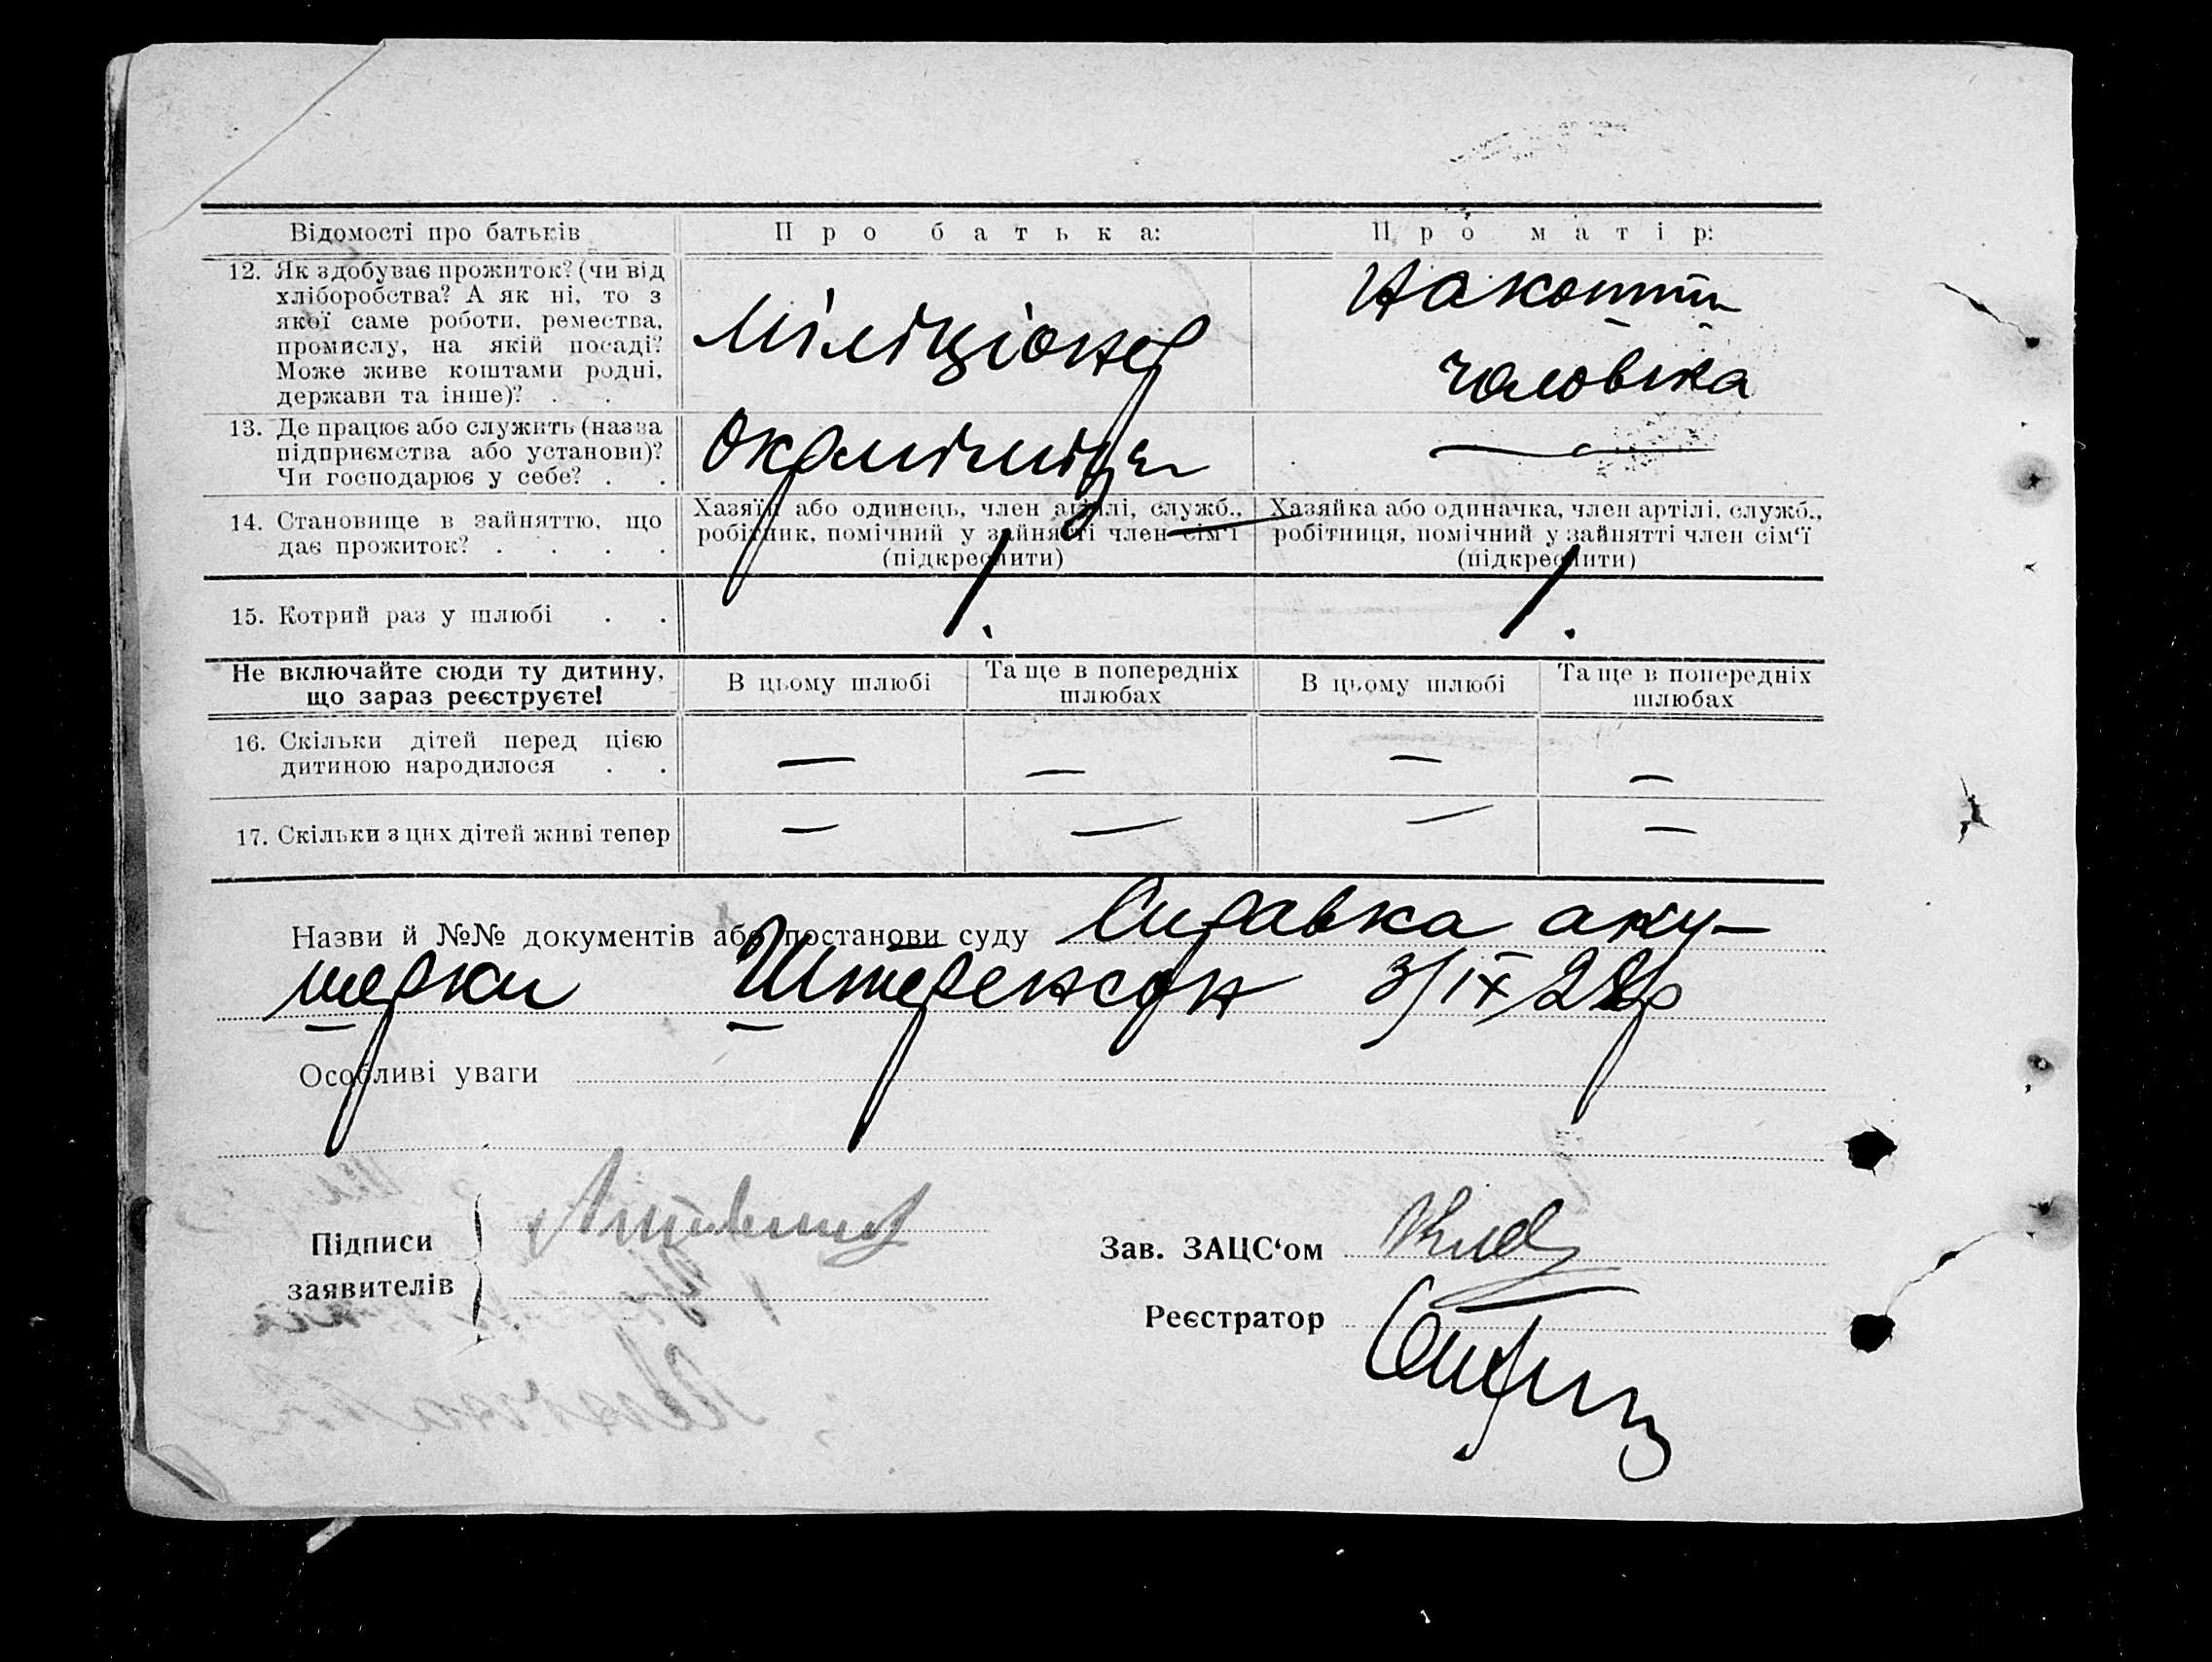 Відомості про батьків
Про батька:
Про матір:
12. Як здобуває прожиток? (чи від
хліборобства? А як ні, то з
якої саме роботи, ремества,
промислу, на якій посаді?
Може живе коштами родні,
держави та інше)? . .
Міліціонер
На кошти
чоловіка
13. Де працює або служить (назва
підприємства або установи)?
Чи господарює у себе? . .
Окрміліція
—
14. Становище в зайняттю, що
дає прожиток? . . . .
Хазяїн або одинець, член артілі, служб.,
робітник, помічний у зайнятті член сім'ї
(підкреслити)
Хазяйка або одиначка, член артілі, служб.,
робітниця, помічний у зайнятті член сім'ї
(підкреслити)
15. Котрий раз у шлюбі . .
1.
1.
Не включайте сюди ту дитину,
що зараз реєструєте!
В цьому шлюбі
Та ще в попередніх
шлюбах
В цьому шлюбі
Та ще в попередніх
шлюбах
16. Скільки дітей перед цією
дитиною народилося . .
— — — —
17. Скільки з цих дітей живі тепер
— — — —
Назви й №№ документів або постанови суду Справка аку-
шерки Штеренсон 3/IX
Особливі уваги
Підписи
заявителів
Зав. ЗАЦС'ом
Реєстратор